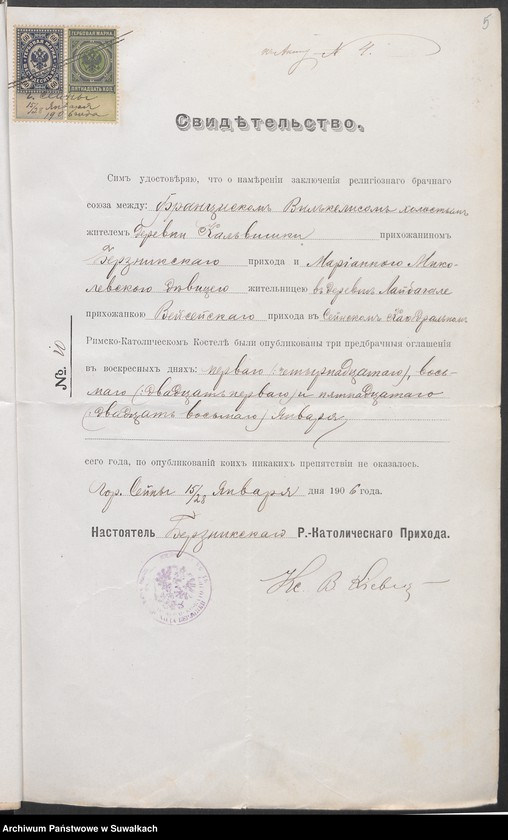 5
къ Акту № 4.
60 60
ГЕРБОВАЯ МАРКА
ПЯТНАДЦАТЬ КОП.
15/28 Января
1906 года
Свидѣтельство.
Симъ удостовѣряю, что о намѣреніи заключенія религіознаго брачнаго
союза между: Францискомъ Вилькелисомъ холостымъ
жителемъ Деревни Кальвишки прихожаниномъ
Берзникскаго прихода и Маріанною Мико-
левскою дѣвицею жительницею въ деревнѣ
прихожанкою Вейсейскаго прихода въ Сейнскомъ Каѳедральномъ
Римско-Католическомъ Костелѣ были опубликованы три предбрачныя оглашенія
въ воскресныхъ дняхъ: перваго (четырнадцатаго), вось-
маго (двадцать перваго) и пятнадцатаго
(двадцать восьмаго) Января
№ 10
сего года, по опубликованій коихъ никакихъ препятствіи не оказалось.
Гор. Сейны 15/28 Января дня 1906 года.
Настоятель Берзникскаго Р.-Католическаго Прихода.
Кс. В.
Archiwum Państwowe w Suwałkach